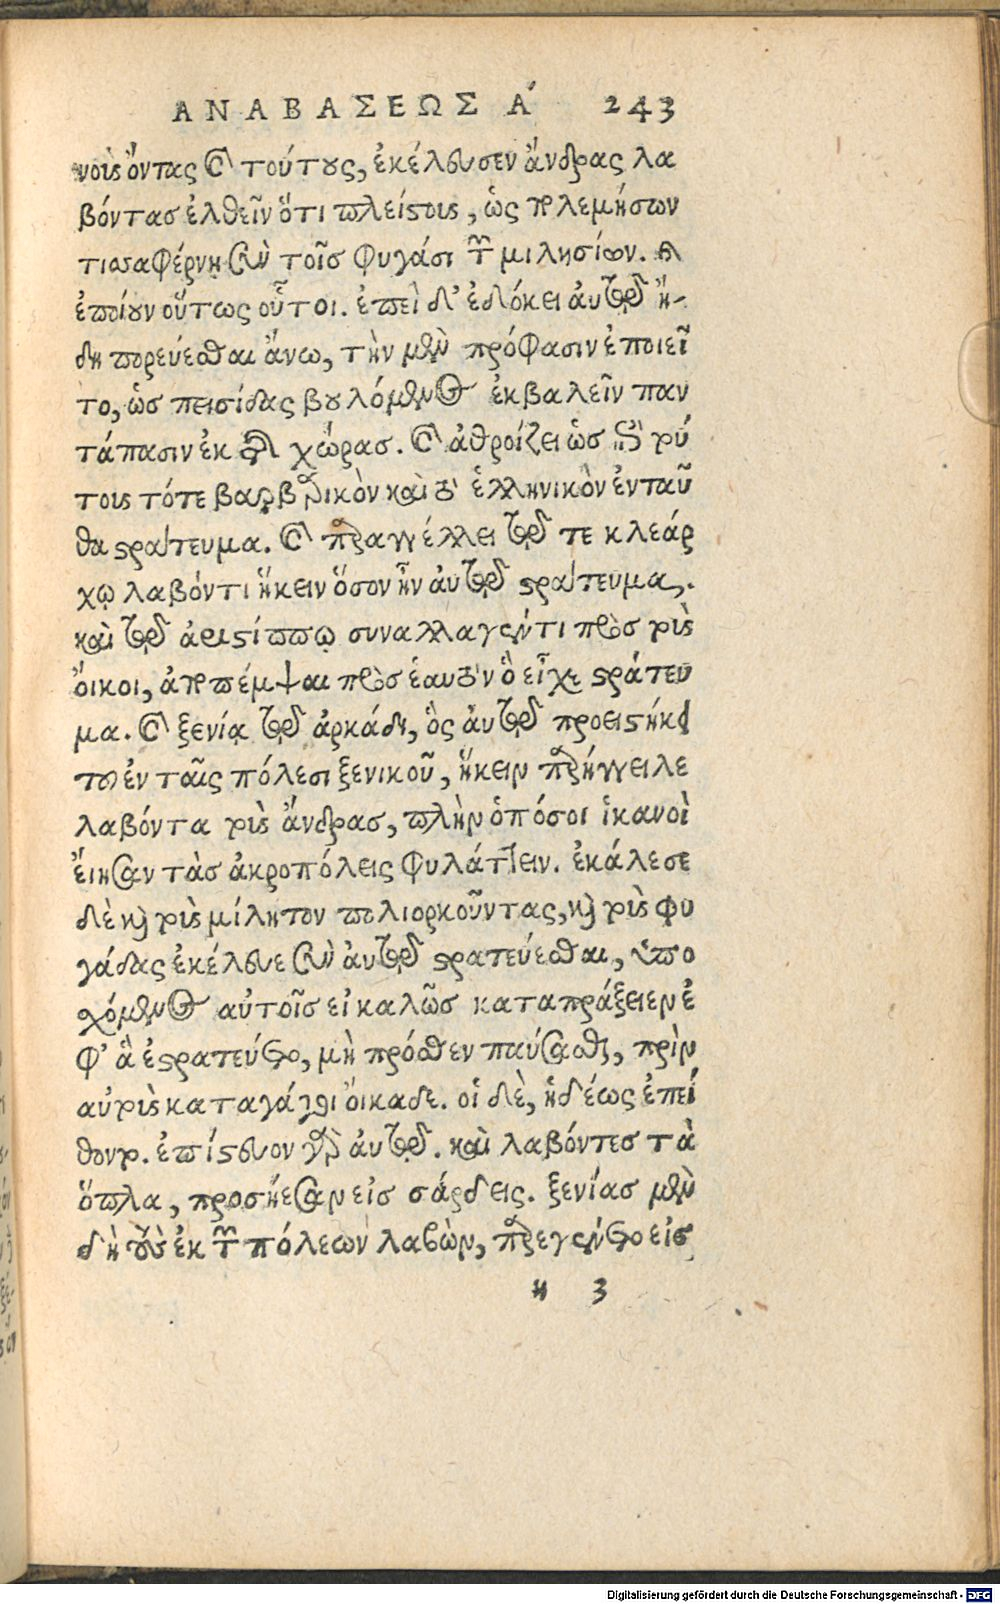 ΑΝΑΒΑΣΕΩΣ Α΄ 243
νοὶς ὄντας καὶ τούτους, ἐκέλευσεν ἄνδρας λα
βόντας ἐλθεῖν ὅτι πλείστους, ὡς πολεμήσων
τισσαφέρνῃ σὺν τοῖς φυγάσι τῶν μιλησίων. καὶ
ἐποίουν οὕτως οὗτοι. ἐπεὶ δ' ἐδόκει αὐτῷ ἤ-
δη πορεύεσθαι ἄνω, τὴν μὲν πρόφασιν ἐποιεῖ
το, ὡς πεισίδας βουλόμενος ἐκβαλεῖν παν
τάπασιν ἐκ τῆς χώρας. καὶ ἀθροίζει ὡς ἐπὶ τού
τους τότε βαρβαρικὸν καὶ τὸ ἑλληνικὸν ἐνταῦ
θα στράτευμα. καὶ παραγγέλλει τῷ τε κλεάρ
χῳ λαβόντι ἥκειν ὅσον ἦν αὐτῷ στράτευμα,.
καὶ τῷ ἀριστίππῳ συναλλαγέντι πρὸς τοὺς
ὄικοι, ἀποπέμψαι πρὸς ἑαυτὸν ὃ εἶχε στράτευ
μα. καὶ ξενίᾳ τῷ ἀρκάδι, ὃς αὐτῷ προειστήκει
τοῦ ἐν ταῖς πόλεσι ξενικοῦ, ἥκειν παρήγγειλε
λαβόντα τοὺς ἄνδρας, πλὴν ὁπόσοι ἱκανοὶ
ἔιησαν τὰς ἀκροπόλεις φυλάττειν. ἐκάλεσε
δὲ καὶ τοὺς μίλητον πολιορκοῦντας, καὶ τοὺς φυ
γάδας ἐκέλευε σὺν αὐτῷ στρατεύεσθαι, ὑπο
χόμενος αὐτοῖς εἰ καλῶς καταπράξειεν ἐ
φ' ἃ ἐστρατεύετο, μὴ πρόσθεν παύσασθαι, πρὶν
αὐτοὺς καταγάγοι ὄικαδε. οἱ δὲ, ἡδέως ἐπεί
θοντο. ἐπίστευον γὰρ αὐτῷ. καὶ λαβόντες τὰ
ὅπλα, προσῄεσαν εἰς σάρδεις. ξενίας μὲν
δὴ τοὺς ἐκ τῶν πόλεων λαβὼν, παρεγένετο εἰς
η 3
Digitalisierung gefördert durch die Deutsche Forschungsgemeinschaft - DFG